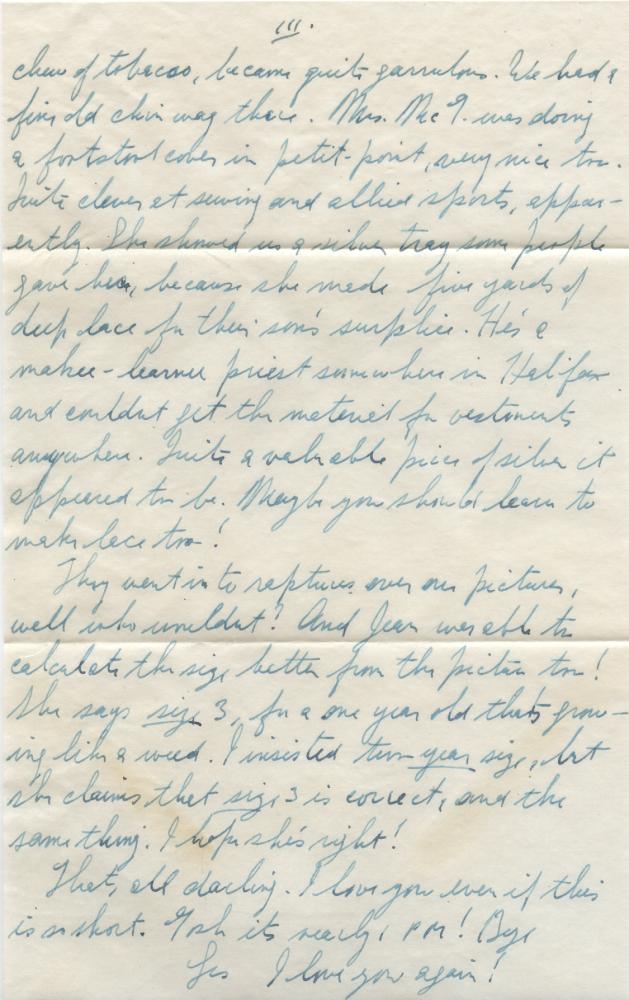 III.
chew of tobacco, became quite garrulous. We had a
fine old chin wag there. Mrs. Mc I. was doing
a footstool cover in petit-point, very nice too.
Quite clever at sewing and allied sports, appar-
ently. She showed us a silver tray some people
gave her, because she made five yards of
deep lace for their son's surplice. He's a
makee-learnee priest somewhere in Halifax
and couldnt get the material for vestments
anywhere. Quite a valuable piece of silver it
appeared to be. Maybe you should learn to
make lace too!
They went in to raptures over our pictures,
well who wouldnt! And Jean was able to
calculate the size better from the picture too!
She says size 3, for a one year old thats grow-
ing like a weed. I insisted two year size, but
she claims that size 3 is correct, and the
same thing. I hope she's right!
That's all darling. I love you even if this
is so short. Gosh its nearly 1 PM! Bye
Les I love you again!